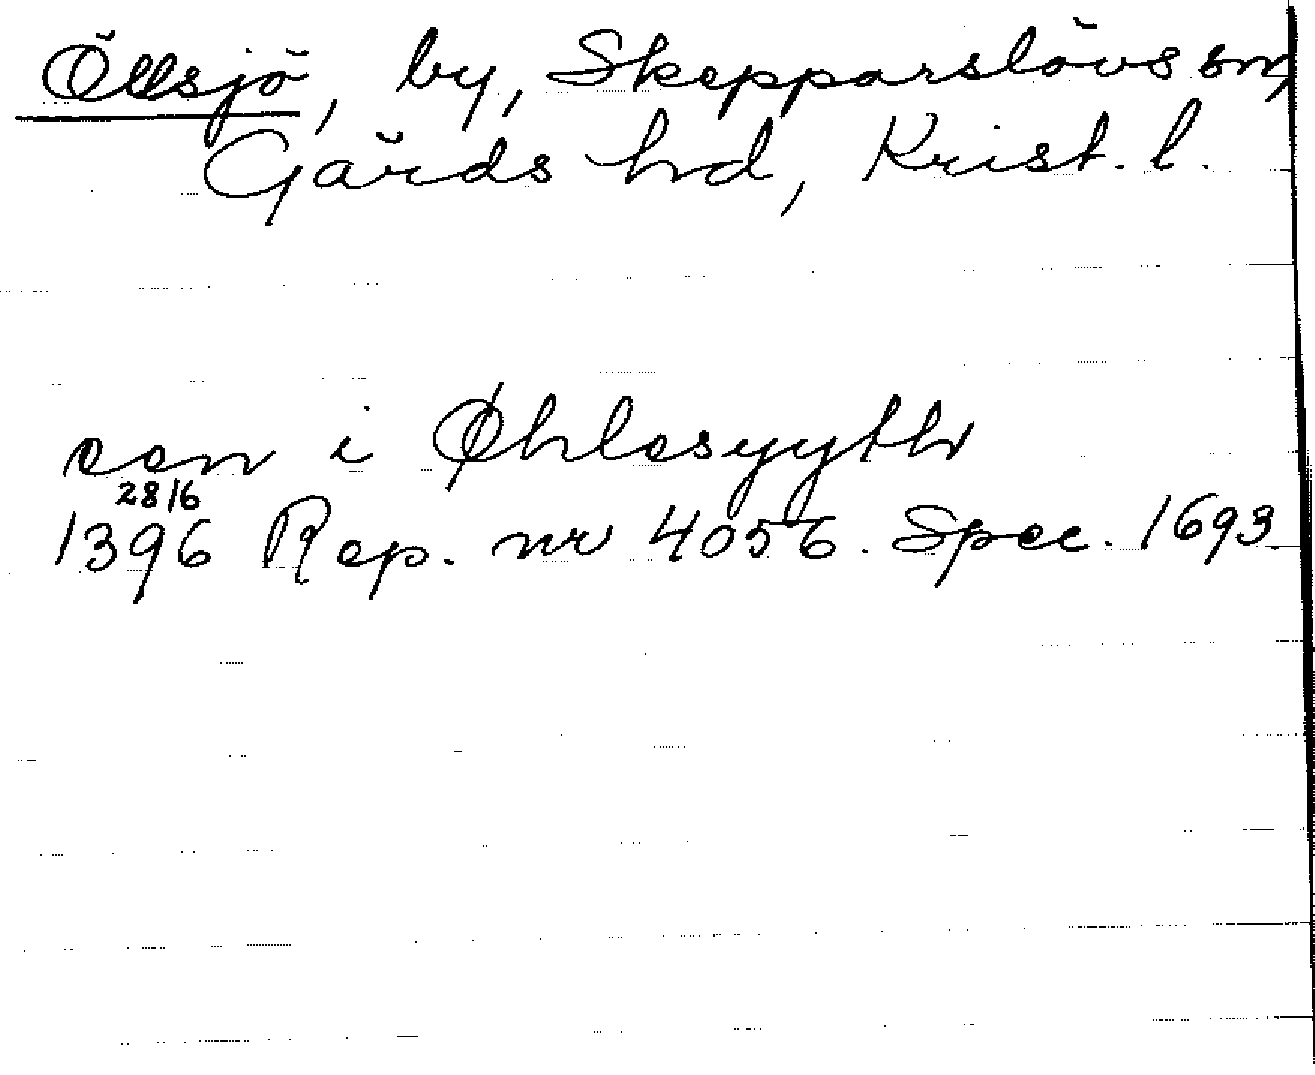 Öllsjö, by, Skepparslövs sn,
Gärds hd, Krist. l.
een i Øhlesyythr
28/6
1396 Rep. nr 4056. Spec. 1693